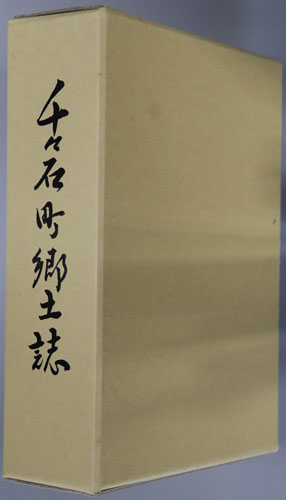 千々石町郷土誌